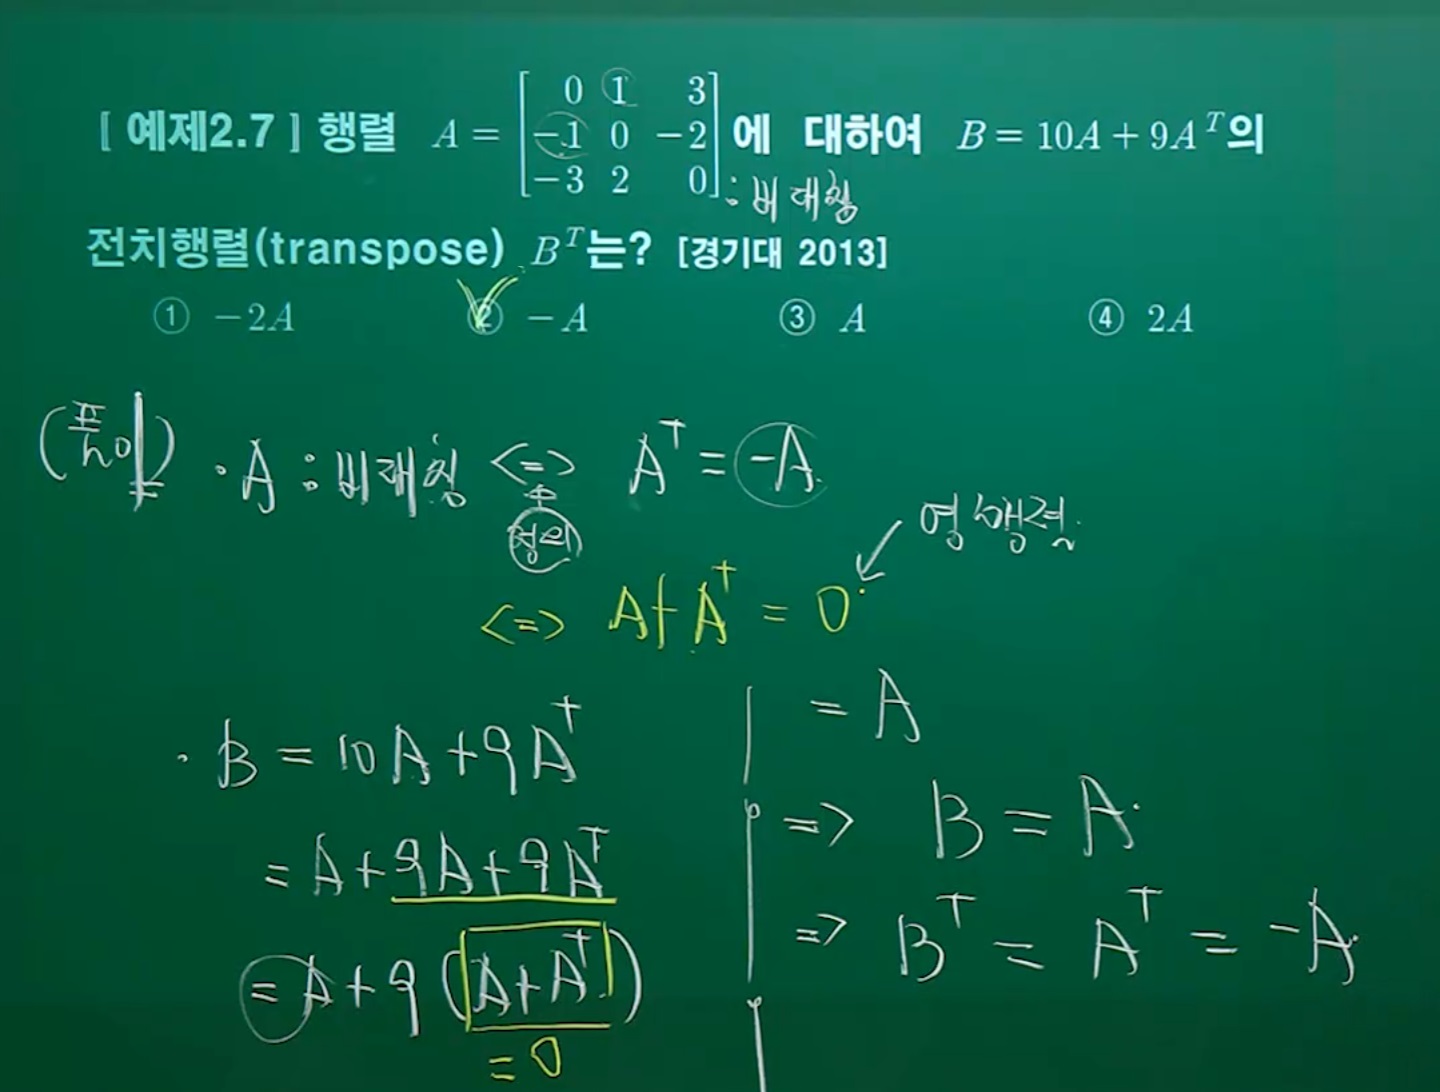 [ 예제2.7 ] 행렬 A = [ 0 1 3 ; −1 0 −2 ; −3 2 0 ] 에 대하여 B = 10A + 9A^T의
: 비대칭
전치행렬(transpose) B^T는? [경기대 2013]
① −2A ② −A ③ A ④ 2A
(풀이) · A : 비대칭 <=> A^T = −A
정의
영행렬
<=> A + A^T = 0
· B = 10A + 9A^T
= A + 9A + 9A^T
= A + 9(A + A^T)
= 0
= A
=> B = A.
=> B^T = A^T = −A.